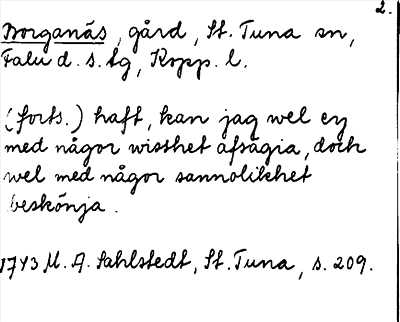 2.
Borganäs, gård, St. Tuna sn,
Falu d. s. tg, Kopp. l.
(forts.) haft, kan jag wel ey
med någor wisshet afsägia, doch
wel med någor sannolikhet
beskönja.
1743 M. A. Sahlstedt, St. Tuna, s. 209.